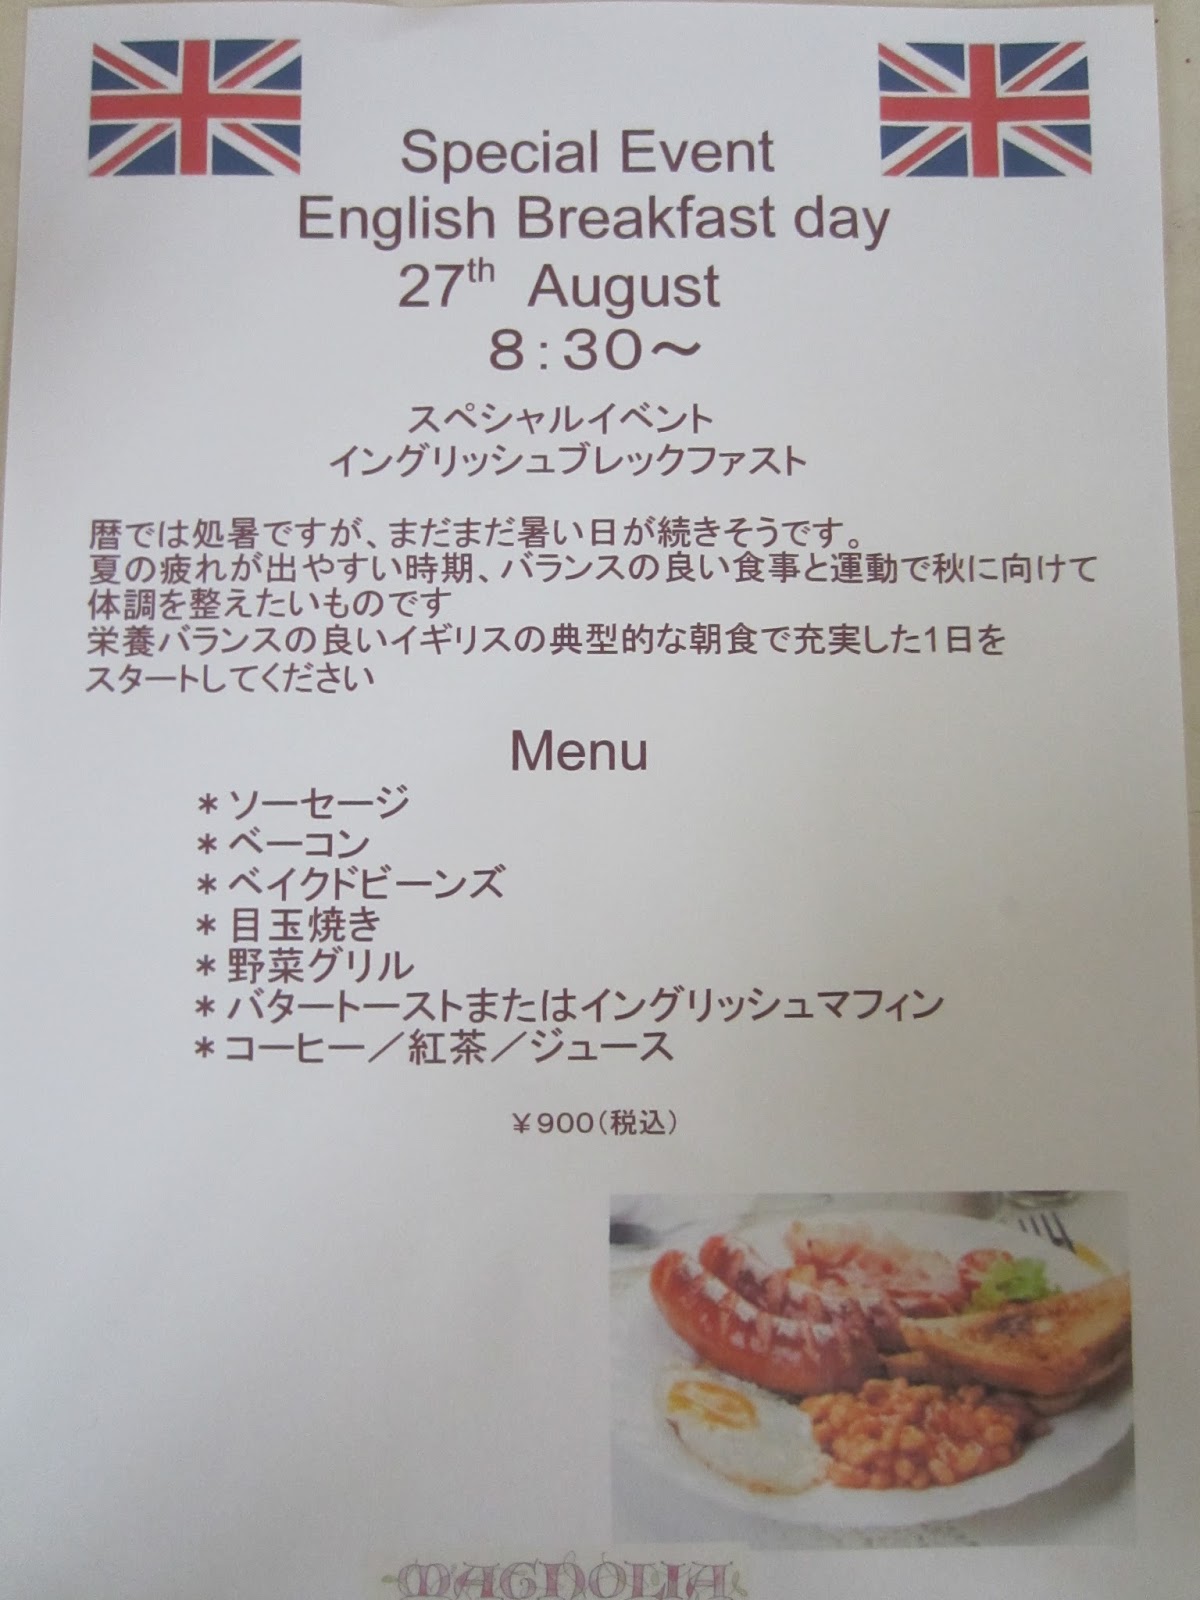 Special Event
English Breakfast day
27th August
8:30～
スペシャルイベント
イングリッシュブレックファスト
暦では処暑ですが、まだまだ暑い日が続きそうです。
夏の疲れが出やすい時期、バランスの良い食事と運動で秋に向けて
体調を整えたいものです
栄養バランスの良いイギリスの典型的な朝食で充実した1日を
スタートしてください
Menu
＊ソーセージ
＊ベーコン
＊ベイクドビーンズ
＊目玉焼き
＊野菜グリル
＊バタートーストまたはイングリッシュマフィン
＊コーヒー／紅茶／ジュース
￥900(税込)
MAGNOLIA